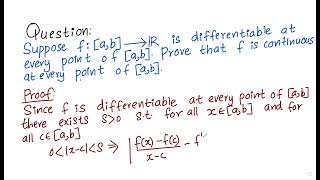 Question:
Suppose f: [a,b] → ℝ is differentiable at
every point of [a,b]. Prove that f is continuous
at every point of [a,b].
Proof:
Since f is differentiable at every point of [a,b]
there exists δ>0 s.t for all x∈[a,b] and for
all c∈[a,b]
0<|x-c|<δ ⇒ | f(x)-f(c) / x-c - f'